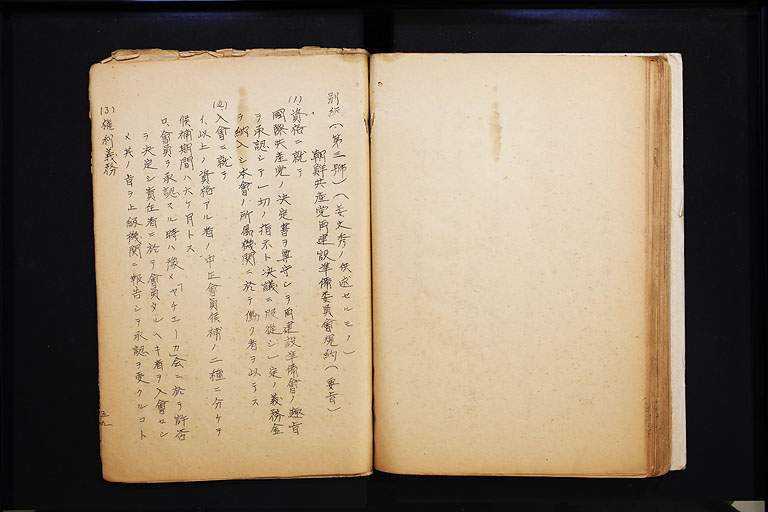 別紙(第三號)(姜文秀ノ供述セルモノ)
朝鮮共産党再建設準備委員會規約(要旨)
(1)資格ニ就テ
國際共産党ノ決定書ヲ尊守シテ再建設準備會ノ趣旨
ヲ承認シテ一切ノ指示ト決議ニ服從シ一定ノ義務金
ヲ納入シ本會ノ所属機関ニ於テ働ク者ヲ以テス
(2)入會ニ就テ
イ、以上ノ資格アル者ノ中正會員候補ノ二種ニ分ケテ
候補期間ハ六ケ月トス
ロ、會員ヲ承認スル時ハ豫メ「ヤチエーカ」会ニ於テ許否
ヲ決定シ責任者ニ於テ會員タルヘキ者ヲ入會セシ
メ其ノ旨ヲ上級機関ニ報告シテ承認ヲ受クルコト
(3)權利義務